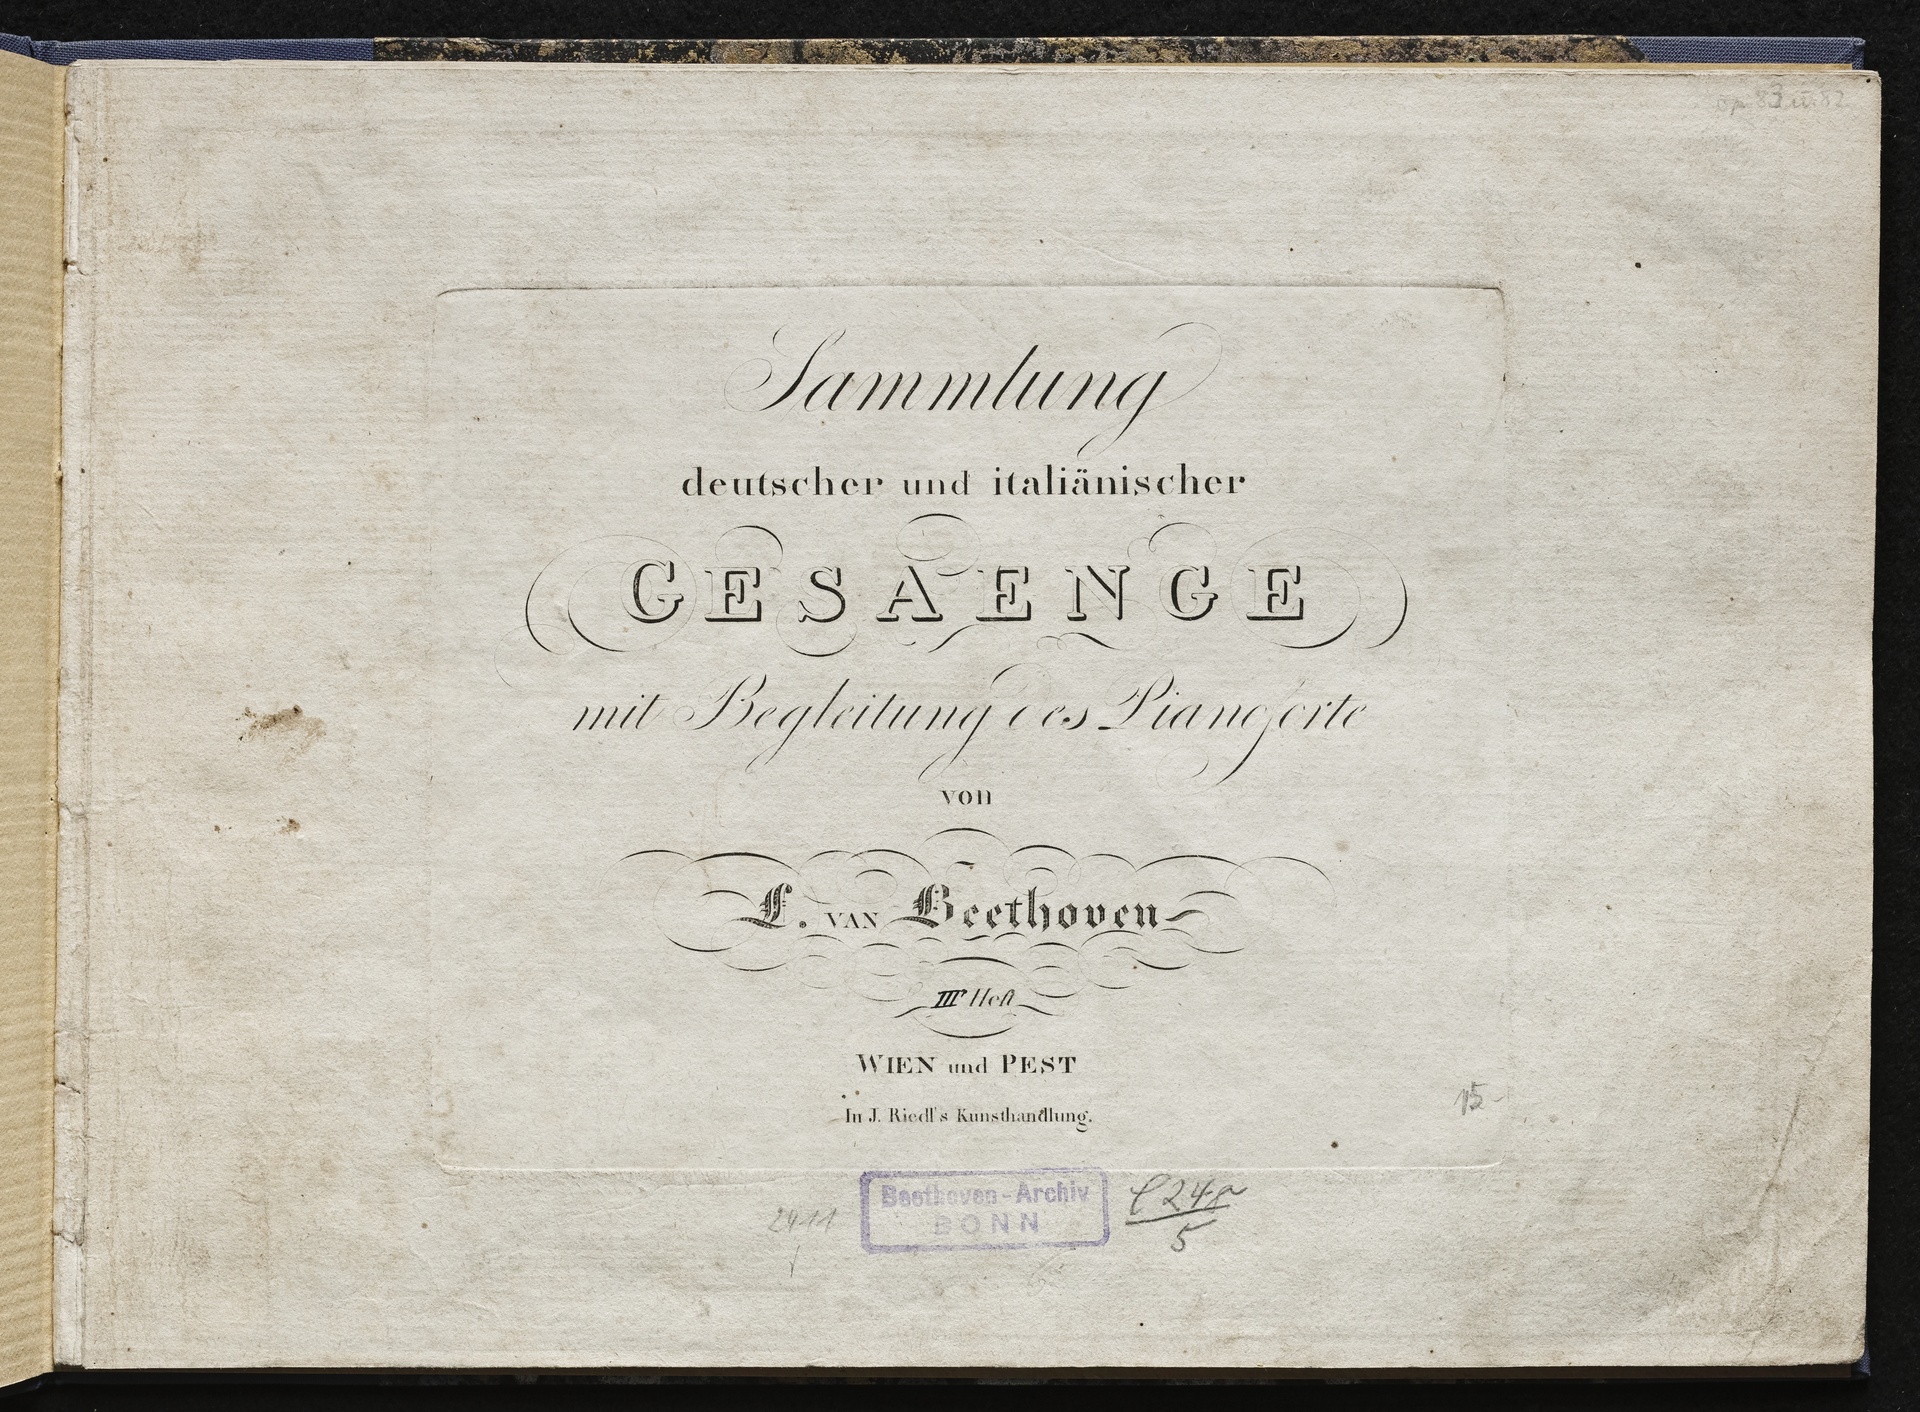 op 83 u. 82
Sammlung
deutscher und italiänischer
GESAENGE
mit Begleitung des Pianoforte
von
L. VAN Beethoven
III Heft
WIEN und PEST
In J. Riedl's Kunsthandlung.
15-
Beethoven-Archiv
BONN
5